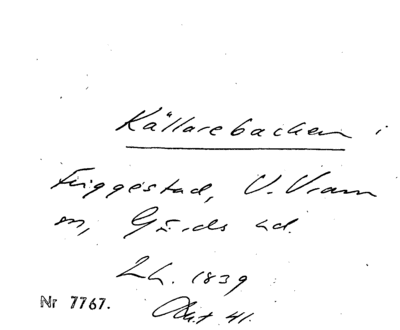 Källarebacken i
Friggestad, V. Vram
sn, Gärds hd.
Lh. 1839
Akt 41.
Nr 7767.